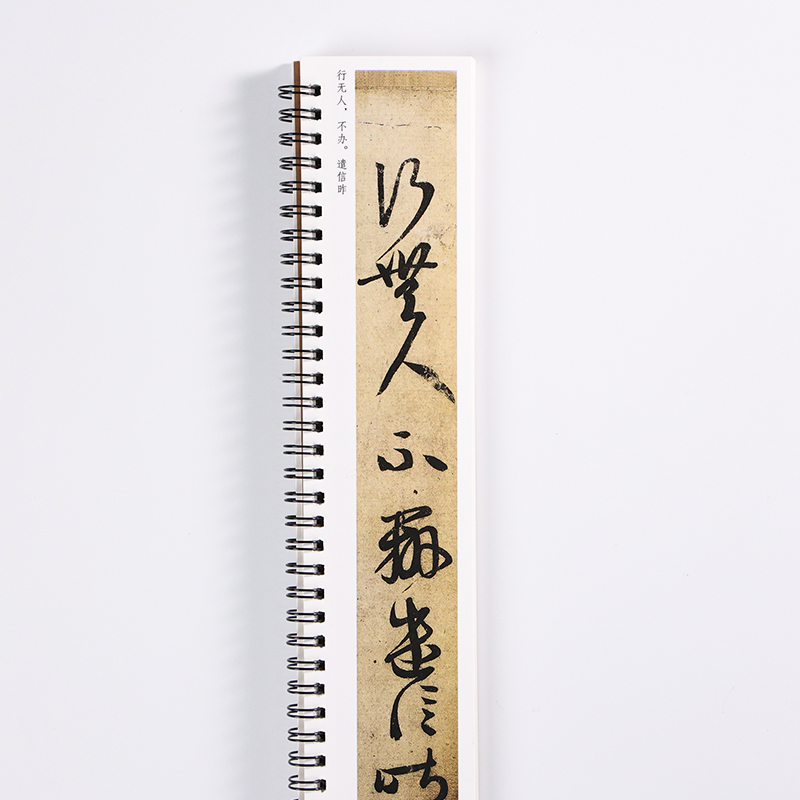 行无人，不办。遣信昨
行無人不辦遣信昨